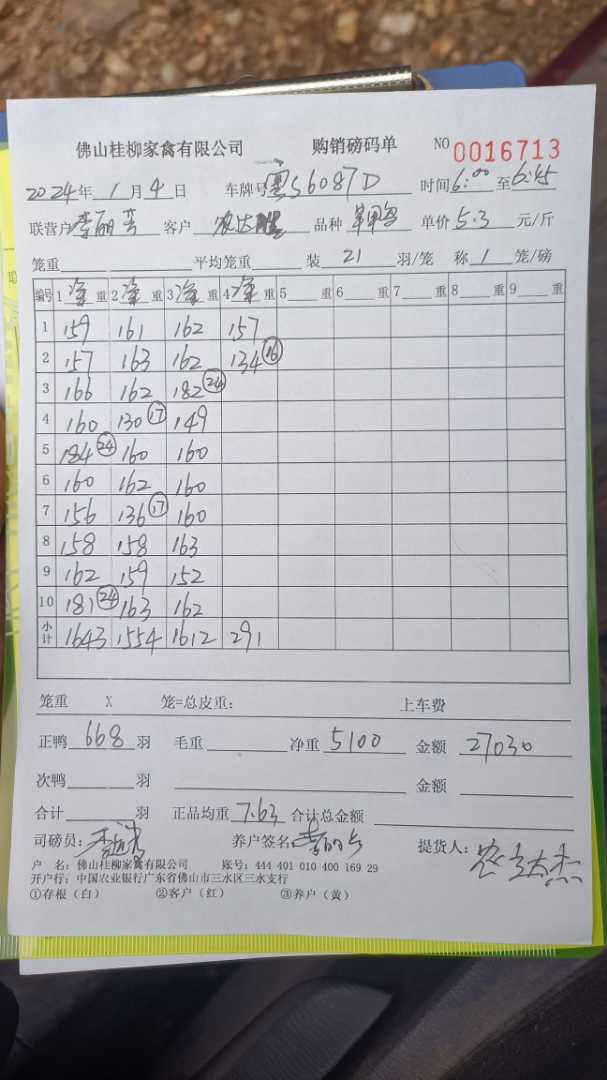 佛山桂柳家禽有限公司 购销磅码单 NO 0016713
2024年 1月 4日 车牌号 粤S6087D 时间 6:00 至 6:45
联营户 李丽 客户 农达 品种 单价 5.3 元/斤
笼重 平均笼重 装 21 羽/笼 称 1 笼/磅
编号 1 净 重 2 净 重 3 净 重 4 净 重 5 重 6 重 7 重 8 重 9 重
1 159 161 162 157
2 157 163 162 134 ⑯
3 166 162 182 ㉔
4 160 130 ⑰ 149
5 184 ㉔ 160 160
6 160 162 160
7 156 136 ⑰ 160
8 158 158 163
9 162 159 152
10 181 ㉔ 163 162
小计 1643 1554 1612 291
笼重 X 笼=总皮重: 上车费
正鸭 668 羽 毛重 净重 5100 金额 27030
次鸭 羽 金额
合计 羽 正品均重 7.63 合计总金额
司磅员: 养户签名: 提货人:
户 名: 佛山桂柳家禽有限公司 账号: 444 401 010 400 169 29
开户行: 中国农业银行广东省佛山市三水区三水支行
①存根（白） ②客户（红） ③养户（黄）